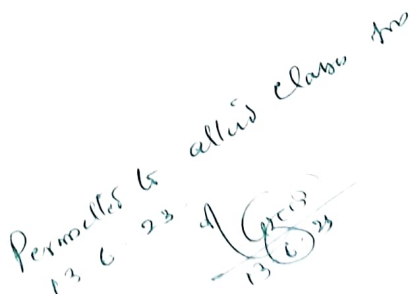 Permitted to attend class
13 6 23
13 6 23